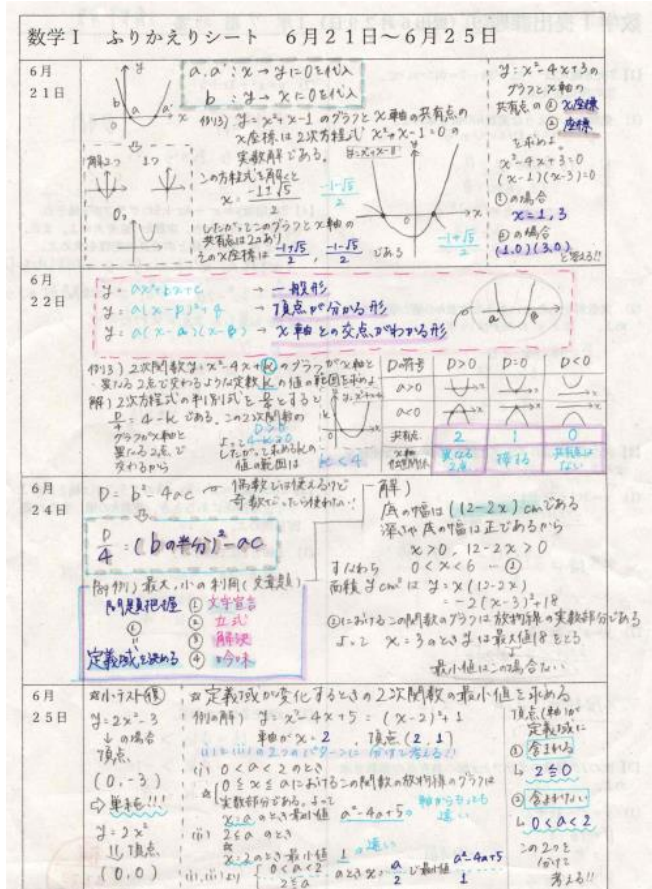 数学Ⅰ ふりかえりシート 6月21日〜6月25日
6月
21日
y
b
a
a'
x
a.a':x→yに0を代入
b :y→xに0を代入
解2つ
1つ
0コ
例3) y=x²+x-1 のグラフとx軸の共有点の
x座標は2次方程式 x²+x-1=0 の
実数解である。
y=x²+x-1
この方程式を解くと
x= -1±√5/2
-1-√5/2
したがってこのグラフとx軸の
共有点は2コあり
そのx座標は -1+√5/2 , -1-√5/2 である
-1+√5/2
y=x²-4x+3の
グラフとx軸の
共有点の①x座標
②座標
を求めよ。
x²-4x+3=0
(x-1)(x-3)=0
①の場合
x=1,3
②の場合
(1,0)(3,0)
と答える!!
6月
22日
y=ax²+bx+c →一般形
y=a(x-p)²+q →頂点が分かる形
y=a(x-α)(x-β) →x軸との交点がわかる形
α β
例3)2次関数y=x²-4x+kのグラフがx軸と
異なる2点で交わるような定数kの値の範囲を求めよ
解)2次方程式の判別式を とすると
D/4=4-kである。この2次関数の
グラフがx軸と
異なる2点で
交わるから
D>0
よって4-k>0
したがって求めるkの
値の範囲は k<4
Dの符号 D>0 D=0 D<0
a>0
a<0
共有点 2 1 0
x軸
位置関係 異なる2点 接する 共有点はない
6月
24日
D=b²-4ac
偶数では使えるけど
奇数だったら使わない!
D/4=(bの半分)²-ac
例) 最大,小の利用(文章題)
問題把握
定義域を決める
①文字宣言
②立式
③解決
④吟味
解)
底の幅は(12-2x)cmである
深さや底の幅は正であるから
x>0, 12-2x>0
すなわち 0<x<6 …①
面積ycm²は y=x(12-2x)
=-2(x-3)²+18
①におけるこの関数のグラフは放物線の実数部分である
よって x=3のときyは最大値18をとる
最小値はこの場合ない
6月
25日
小テスト
y=2x²-3
↓の場合
頂点
(0,-3)
y=2x²
頂点
(0,0)
☆定義域が変化するときの2次関数の最小値を求める
例の解) y=x²-4x+5=(x-2)²+1
軸がx=2 , 頂点(2,1)
(i)と(ii)の2つのパターンに分けて考える!!
(i) 0<a<2のとき
0≦x≦aにおけるこの関数の放物線のグラフは
実数部分である。よって
x=aのとき最小値 a²-4a+5
軸からもっとも
遠い
(ii) 2≦aのとき
x=2のとき最小値 1
(i),(ii)より
0<a<2
2≦a
のとき x=
a
2
で最小値
a²-4a+5
1
頂点(軸)が
定義域に
①含まれる
2≦a
②含まれない
0<a<2
この2つを
分けて
考える!!